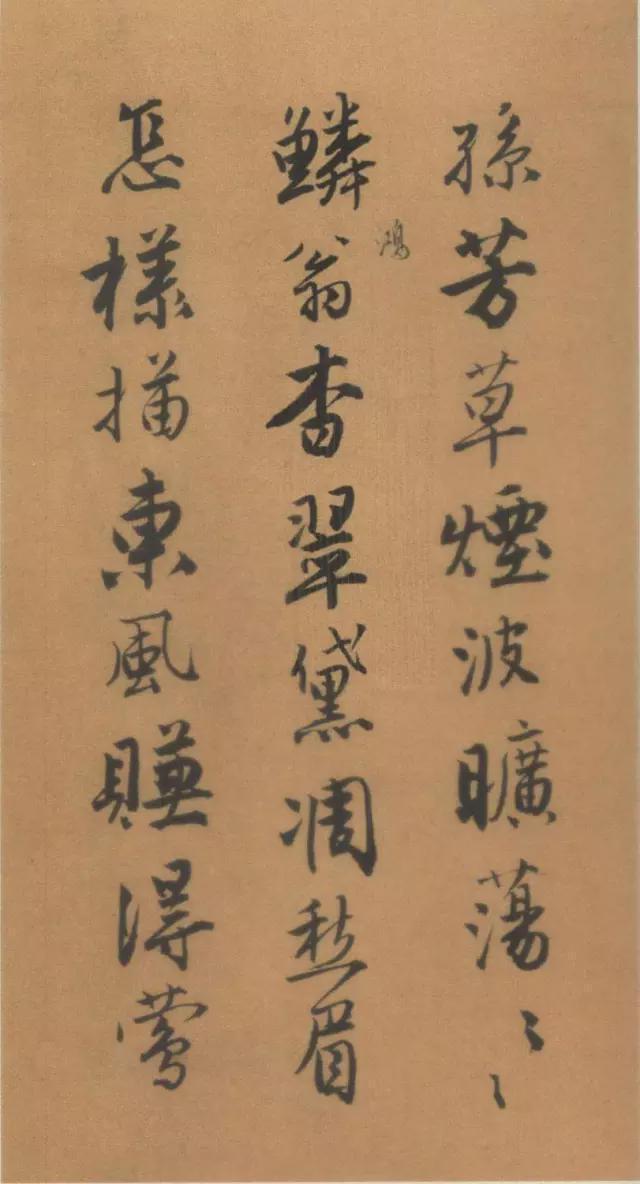 孫芳草煙波曠蕩々々
鱗翁杳翠黛凋愁眉
鴻
怎樣描東風賺得鶯